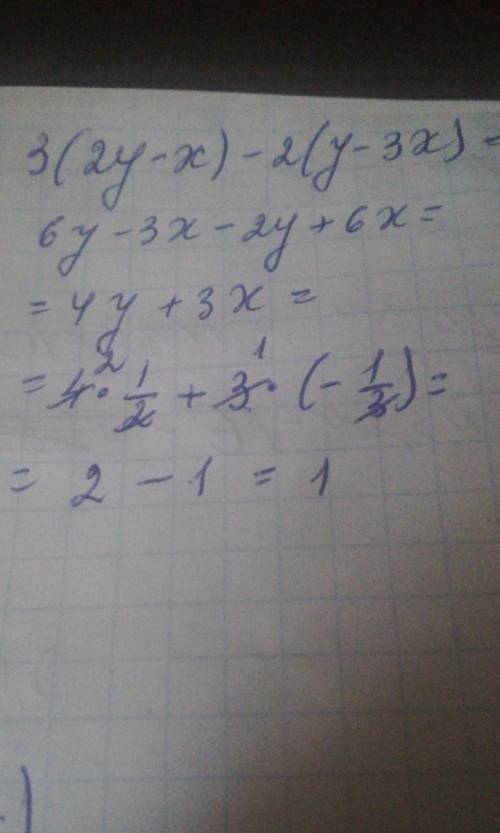 3(2y-x)-2(y-3x)=
6y-3x-2y+6x=
=4y+3x=
=4·1/2+3·(-1/3)=
=2-1=1